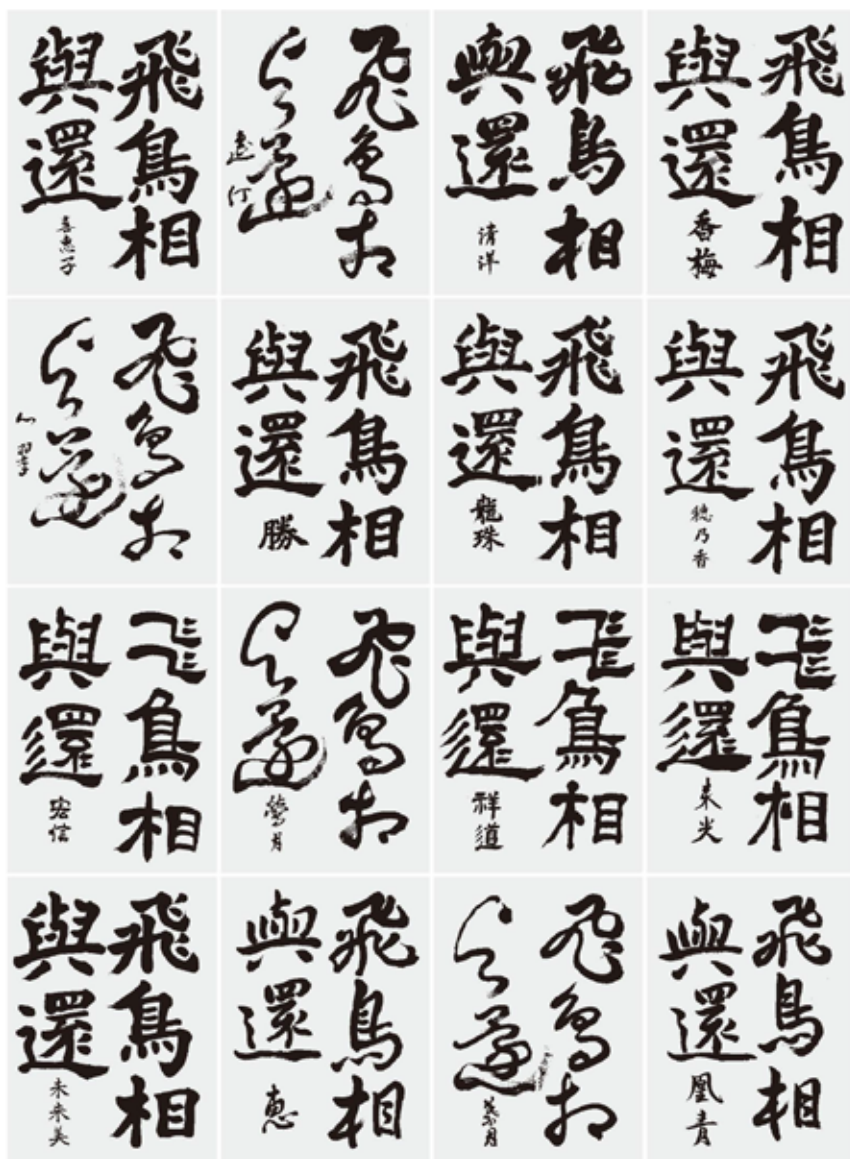 飛鳥相
與還
喜惠子
飛鳥相
與還
飛鳥相
與還
清洋
飛鳥相
與還
香梅
飛鳥相
與還
飛鳥相
與還
勝
飛鳥相
與還
龍珠
飛鳥相
與還
穂乃香
飛鳥相
與還
宏信
飛鳥相
與還
飛鳥相
與還
祥道
飛鳥相
與還
飛鳥相
與還
未来美
飛鳥相
與還
恵
飛鳥相
與還
飛鳥相
與還
凰青